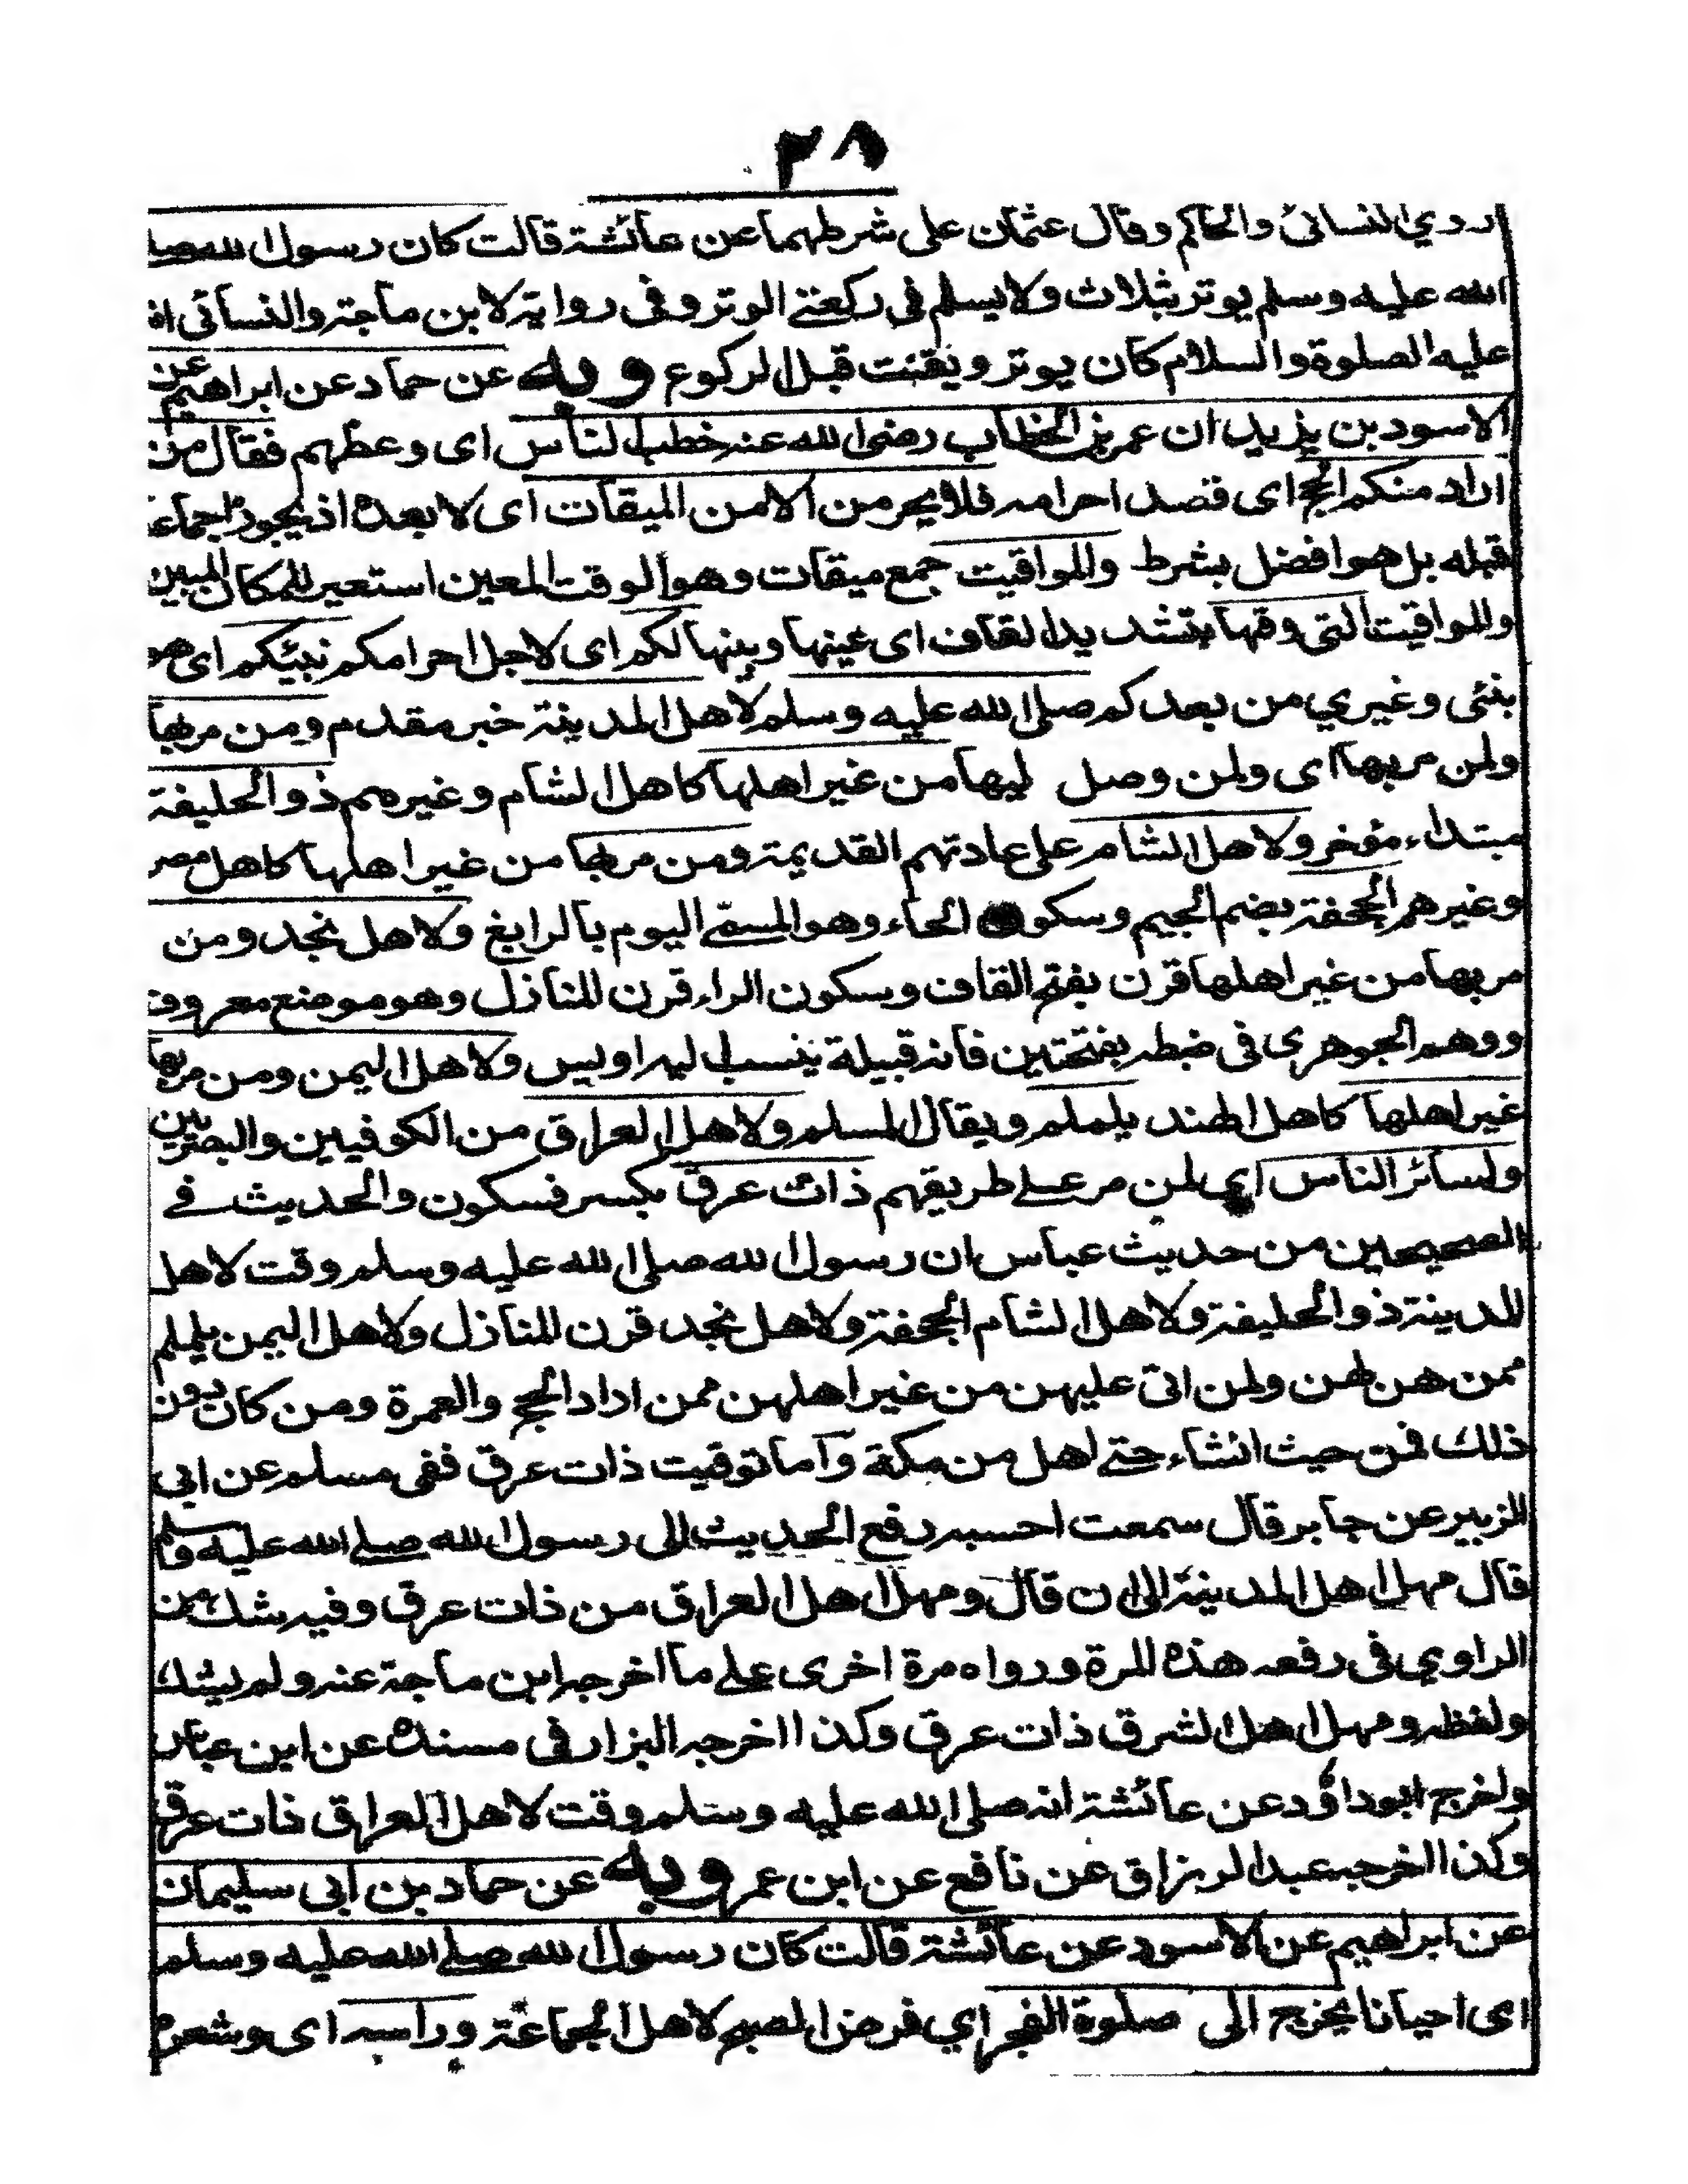 ٢٨
روي النسائي والحاكم وقال عثمان على شرطهما عن عائشة قالت كان رسول الله صلى
الله عليه وسلم يوتر بثلاث ولا يسلم في ركعتے الوتر وفى رواية لابن ماجة والنسائى انه
عليه الصلوة والسلام كان يوتر ويقنت قبل الركوع وبه عن حماد عن ابراهيم عن
الاسود بن يزيد ان عمر بن الخطاب رضى الله عنه خطب الناس اى وعظهم فقال من
اراد منكم الحج اى قصد احرامه فلا يحرمن الا من الميقات اى لا بعده اذ يجوز اجماعا
قبله بل هو افضل بشرط والمواقيت جمع ميقات وهو الوقت المعين استعير للمكان المبين
والمواقيت التى وقتها بتشديد القاف اى عينها وبينها لكم اى لاجل احرامكم نبيئكم اى هو
بنئى وغيري من بعدكم صلى الله عليه وسلم لاهل المدينة خبر مقدم ومن مر بها
ولمن مر بها اى ولمن وصل ليها من غير اهلها كاهل الشام وغيرهم ذو الحليفة
مبتداء مؤخر ولاهل الشام على عادتهم القديمة ومن مر بها من غير اهلها كاهل مصر
وغيرهم الجحفة بضم الجيم وسكون الحاء وهو المسمّے اليوم بالرابغ ولاهل نجد ومن
مر بها من غير اهلها قرن بفتح القاف وسكون الراء قرن المنازل وهو موضع معروف
ووهم الجوهرى فى ضبطه بفتحتين فانه قبيلة ينسب اليه اويس ولاهل اليمن ومن مر بها
غير اهلها كاهل الهند يلملم ويقال المسلم ولاهل العراق من الكوفيين والبصريين
ولسائر الناس اي لمن مر علے طريقهم ذات عرق بكسر فسكون والحديث فے
الصحيحين من حديث عباس ان رسول الله صلى الله عليه وسلم وقت لاهل
المدينة ذو الحليفة ولاهل الشام الجحفة ولاهل نجد قرن المنازل ولاهل اليمن يلملم
ممن هن لهن ولمن اتى عليهن من غير اهلهن ممن اراد الحج والعمرة ومن كان دون
ذلك فمن حيث انشاء حتے اهل من مكة وآما توقيت ذات عرق ففى مسلم عن ابى
الزبير عن جابر قال سمعت احسبه رفع الحديث الى رسول الله صلے الله عليه وسلم
قال مهل اهل المدينة الى ان قال ومهل اهل العراق من ذات عرق وفيه شك من
الراوي فى رفعه هذه المرة ورواه مرة اخرى علے ما اخرجه ابن ماجة عنه ولم يشك
ولفظه ومهل اهل الشرق ذات عرق وكذا اخرجه البزار فى مسنده عن ابن عباس
واخرج ابوداؤد عن عائشة انه صلى الله عليه وسلم وقت لاهل العراق ذات عرق
وكذا اخرجه عبد الرزاق عن نافع عن ابن عمر وبه عن حماد بن ابى سليمان
عن ابراهيم عن الاسود عن عائشة قالت كان رسول الله صلے الله عليه وسلم
اى احيانا يخرج الى صلوة الفجر اي فرض الصبح لاهل الجماعة وراسه اى وشعره